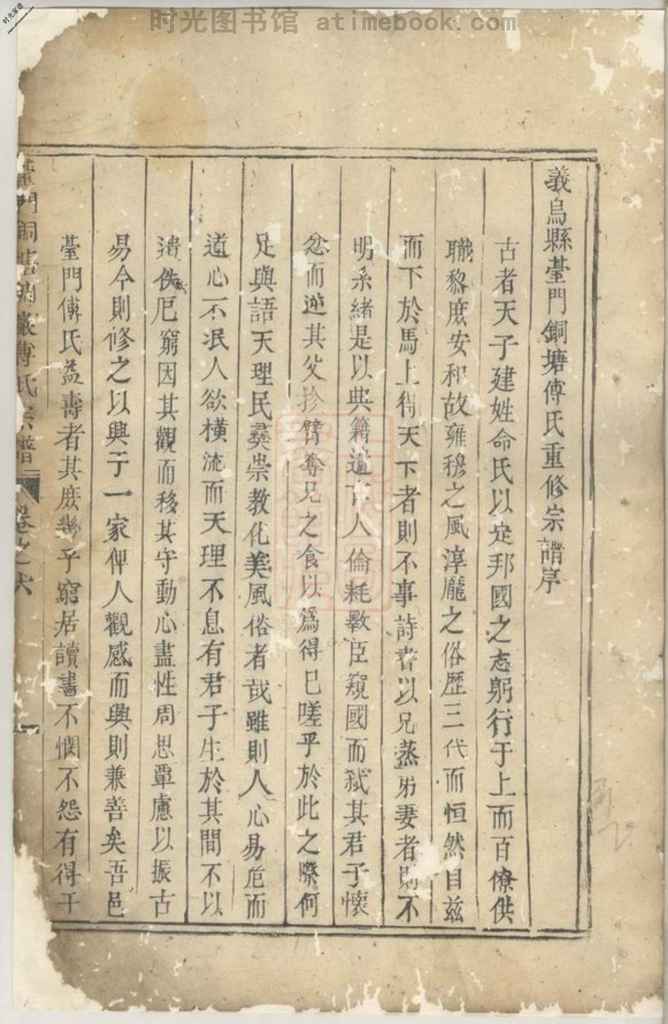 时光图书馆 atimebook.com
義烏縣臺門銅塘傅氏重修宗譜序
古者天子建姓命氏以定邦國之志躬行于上而百僚供
職黎庶安和故雍穆之風淳龎之俗歷三代而恒然自茲
而下於馬上得天下者則不事詩書以兄蒸弟妻者則不
明系緒是以典籍遺亡人倫耗斁臣窺國而弒其君子懷
忿而逆其父紾臂奪兄之食以爲得已嗟乎於此之際何
足與語天理民彝崇教化美風俗者哉雖則人心易危而
道心不泯人欲橫流而天理不息有君子生於其間不以
遺佚厄窮因其觀而移其守動心盡性周思覃慮以振古
易今則修之以興于一家俾人觀感而興則兼善矣吾邑
臺門傅氏益壽者其庶幾乎窮居讀書不憫不怨有得于
臺門銅塘 傅氏宗譜 卷之六 一